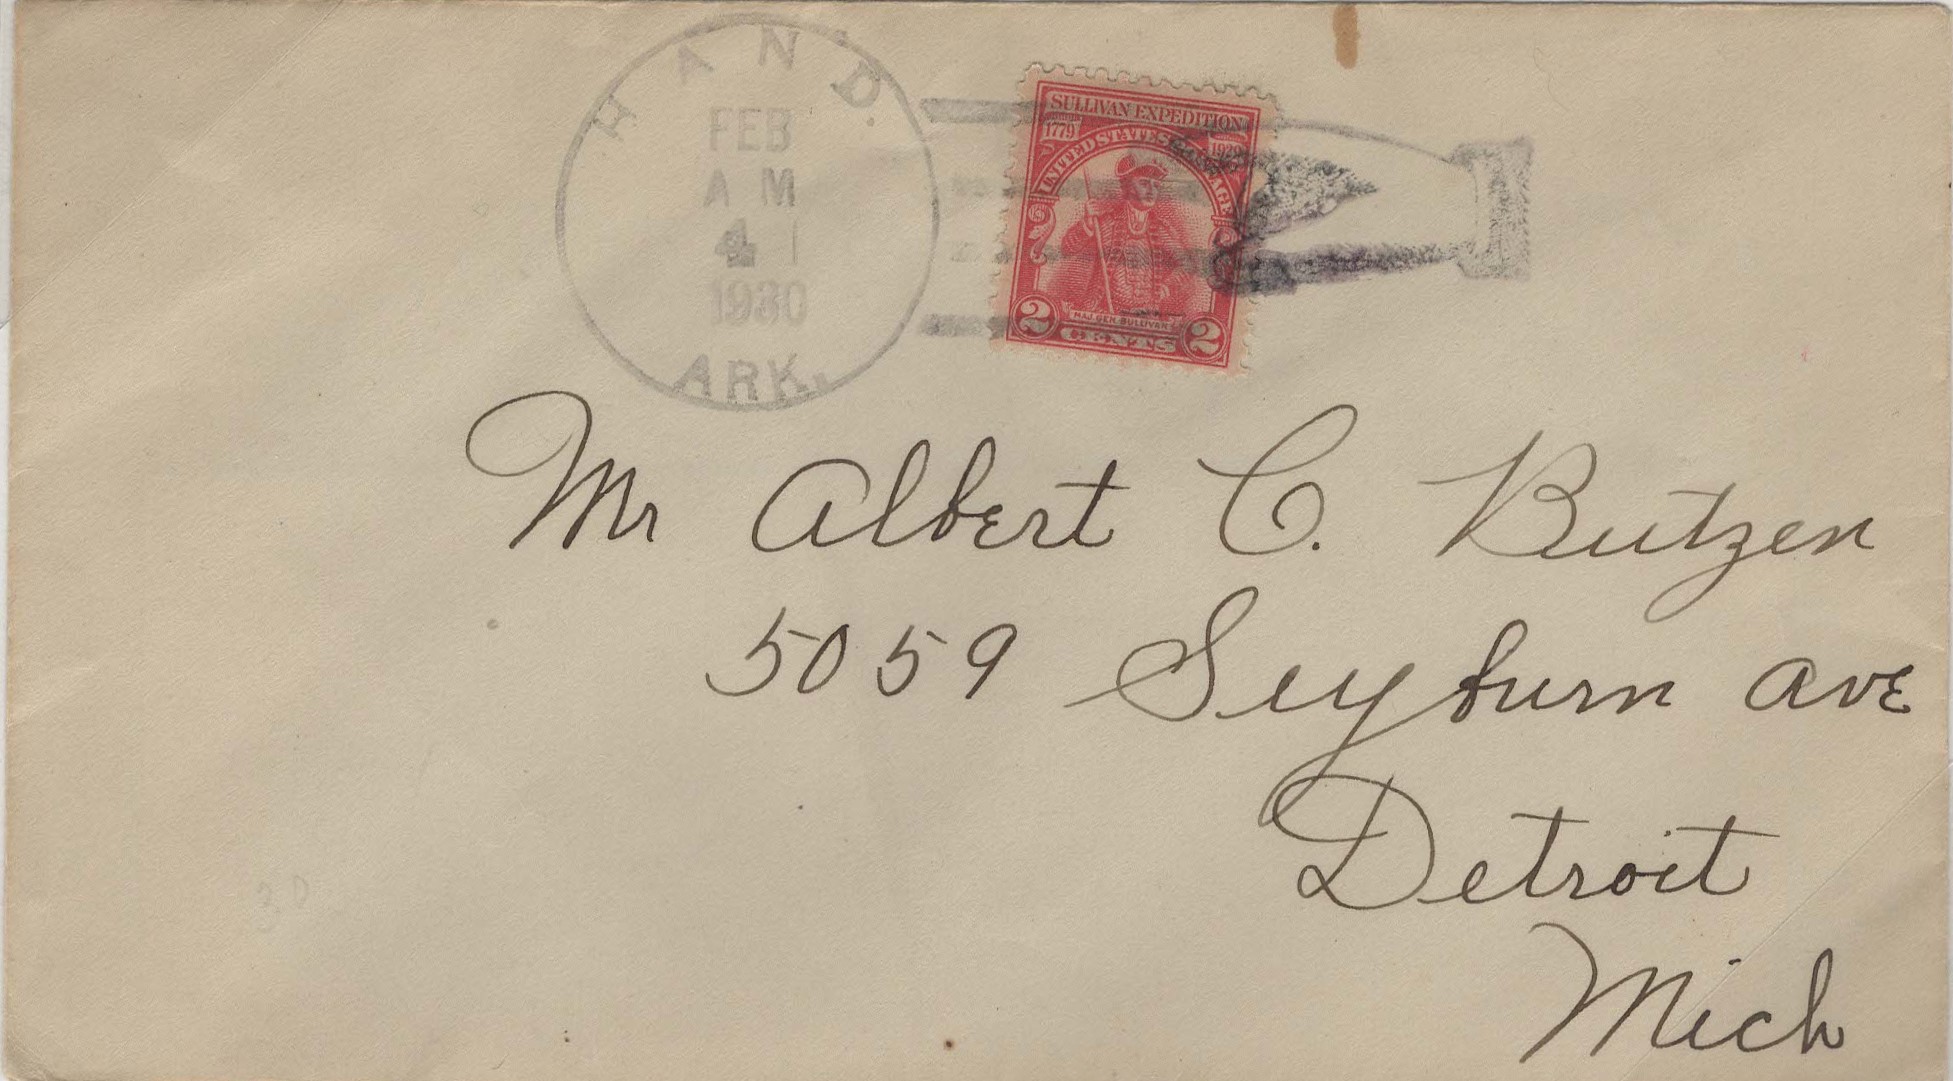 HAND.
FEB
A M
4
1930
ARK.
SULLIVAN EXPEDITION
1779 1929
UNITED STATES POSTAGE
MAJ. GEN. SULLIVAN
2 CENTS 2
Mr Albert C. Butzen
5059 Seyburn Ave
Detroit
Mich